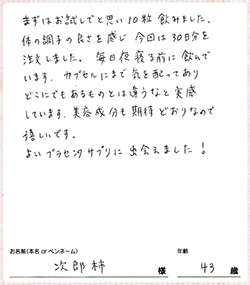 まずはお試しでと思い10粒飲みました。
体の調子の良さを感じ今回は30日分を
注文しました。毎日夜寝る前に飲んで
います。カプセルにまで気を配ってあり
どこにでもあるものとは違うなと実感
しています。美容成分も期待どおりなので
嬉しいです。
よいプラセンタサプリに出会えました!
お名前(本名 or ペンネーム) 年齢
次郎柿 様 43 歳